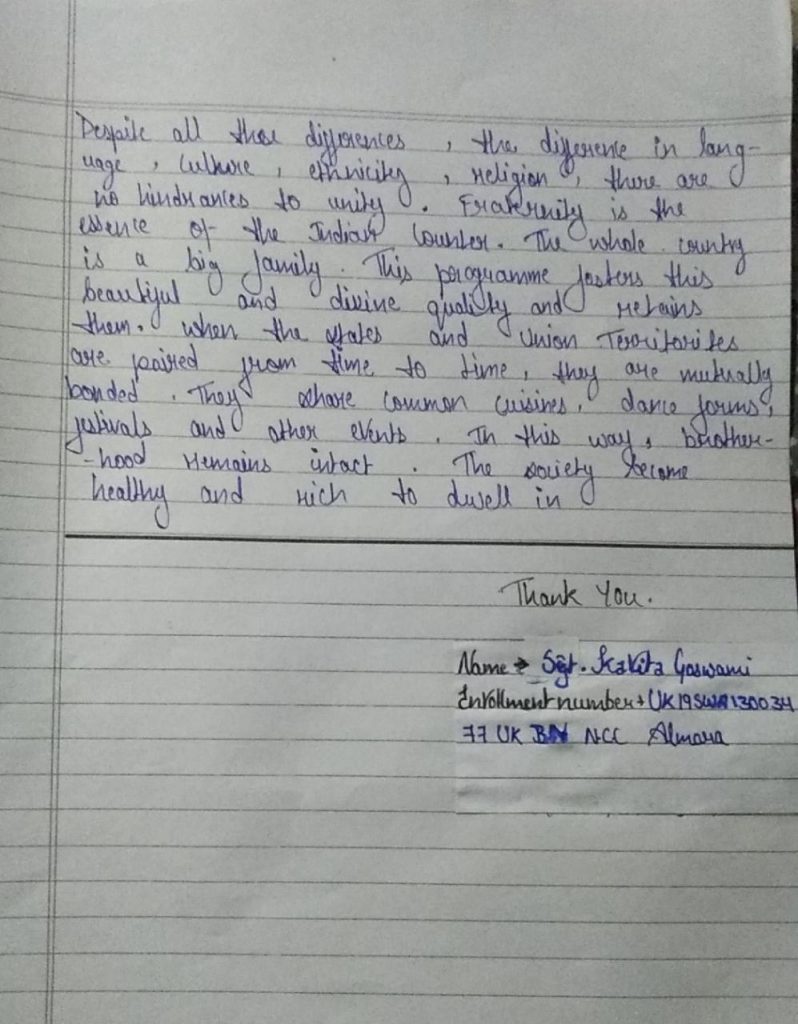 Despite all these differences, the difference in lang-
uage, culture, ethnicity, religion, there are
no hindrances to unity. Fraternity is the
essence of the Indian Counter. The whole country
is a big family. This programme fosters this
beautiful and divine quality and retains
them. when the states and Union Territorites
are paired from time to time, they are mutually
bonded. They share common cuisines, dance forms,
festivals and other events. In this way, brother-
-hood remains intact. The society become
healthy and rich to dwell in
Thank You.
Name → Sgt. Goswami
Enrollment number → UK19SWA130034
77 UK BN NCC Almora